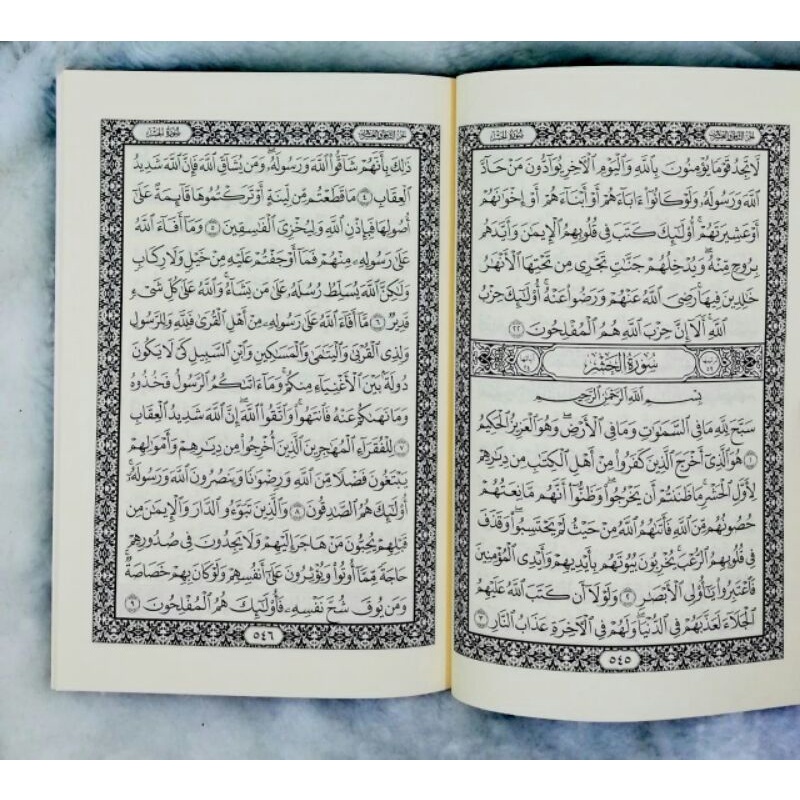 سورة الحشر
الجزء الثامن والعشرون
لَّا تَجِدُ قَوْمًا يُؤْمِنُونَ بِٱللَّهِ وَٱلْيَوْمِ ٱلْءَاخِرِ يُوَآدُّونَ مَنْ حَآدَّ
ٱللَّهَ وَرَسُولَهُۥ وَلَوْ كَانُوٓا۟ ءَابَآءَهُمْ أَوْ أَبْنَآءَهُمْ أَوْ إِخْوَٰنَهُمْ
أَوْ عَشِيرَتَهُمْ ۚ أُو۟لَٰٓئِكَ كَتَبَ فِى قُلُوبِهِمُ ٱلْإِيمَٰنَ وَأَيَّدَهُم
بِرُوحٍ مِّنْهُ ۖ وَيُدْخِلُهُمْ جَنَّٰتٍ تَجْرِى مِن تَحْتِهَا ٱلْأَنْهَٰرُ
خَٰلِدِينَ فِيهَا ۚ رَضِىَ ٱللَّهُ عَنْهُمْ وَرَضُوا۟ عَنْهُ ۚ أُو۟لَٰٓئِكَ حِزْبُ
ٱللَّهِ ۚ أَلَآ إِنَّ حِزْبَ ٱللَّهِ هُمُ ٱلْمُفْلِحُونَ ٢٢
سُورَةُ الحَشْرِ
بِسْمِ ٱللَّهِ ٱلرَّحْمَٰنِ ٱلرَّحِيمِ
سَبَّحَ لِلَّهِ مَا فِى ٱلسَّمَٰوَٰتِ وَمَا فِى ٱلْأَرْضِ ۖ وَهُوَ ٱلْعَزِيزُ ٱلْحَكِيمُ
١ هُوَ ٱلَّذِىٓ أَخْرَجَ ٱلَّذِينَ كَفَرُوا۟ مِنْ أَهْلِ ٱلْكِتَٰبِ مِن دِيَٰرِهِمْ
لِأَوَّلِ ٱلْحَشْرِ ۚ مَا ظَنَنتُمْ أَن يَخْرُجُوا۟ ۖ وَظَنُّوٓا۟ أَنَّهُم مَّانِعَتُهُمْ
حُصُونُهُم مِّنَ ٱللَّهِ فَأَتَىٰهُمُ ٱللَّهُ مِنْ حَيْثُ لَمْ يَحْتَسِبُوا۟ ۖ وَقَذَفَ
فِى قُلُوبِهِمُ ٱلرُّعْبَ ۚ يُخْرِبُونَ بُيُوتَهُم بِأَيْدِيهِمْ وَأَيْدِى ٱلْمُؤْمِنِينَ
فَٱعْتَبِرُوا۟ يَٰٓأُو۟لِى ٱلْأَبْصَٰرِ ٢ وَلَوْلَآ أَن كَتَبَ ٱللَّهُ عَلَيْهِمُ
ٱلْجَلَآءَ لَعَذَّبَهُمْ فِى ٱلدُّنْيَا ۖ وَلَهُمْ فِى ٱلْءَاخِرَةِ عَذَابُ ٱلنَّارِ ٣
٥٤٥
الجزء الثامن والعشرون
سورة الحشر
ذَٰلِكَ بِأَنَّهُمْ شَآقُّوا۟ ٱللَّهَ وَرَسُولَهُۥ ۖ وَمَن يُشَآقِّ ٱللَّهَ فَإِنَّ ٱللَّهَ شَدِيدُ
ٱلْعِقَابِ ٤ مَا قَطَعْتُم مِّن لِّينَةٍ أَوْ تَرَكْتُمُوهَا قَآئِمَةً عَلَىٰٓ
أُصُولِهَا فَبِإِذْنِ ٱللَّهِ وَلِيُخْزِىَ ٱلْفَٰسِقِينَ ٥ وَمَآ أَفَآءَ ٱللَّهُ
عَلَىٰ رَسُولِهِۦ مِنْهُمْ فَمَآ أَوْجَفْتُمْ عَلَيْهِ مِنْ خَيْلٍ وَلَا رِكَابٍ
وَلَٰكِنَّ ٱللَّهَ يُسَلِّطُ رُسُلَهُۥ عَلَىٰ مَن يَشَآءُ ۚ وَٱللَّهُ عَلَىٰ كُلِّ شَىْءٍ
قَدِيرٌ ٦ مَّآ أَفَآءَ ٱللَّهُ عَلَىٰ رَسُولِهِۦ مِنْ أَهْلِ ٱلْقُرَىٰ فَلِلَّهِ وَلِلرَّسُولِ
وَلِذِى ٱلْقُرْبَىٰ وَٱلْيَتَٰمَىٰ وَٱلْمَسَٰكِينِ وَٱبْنِ ٱلسَّبِيلِ كَىْ لَا يَكُونَ
دُولَةًۢ بَيْنَ ٱلْأَغْنِيَآءِ مِنكُمْ ۚ وَمَآ ءَاتَىٰكُمُ ٱلرَّسُولُ فَخُذُوهُ
وَمَا نَهَىٰكُمْ عَنْهُ فَٱنتَهُوا۟ ۚ وَٱتَّقُوا۟ ٱللَّهَ ۖ إِنَّ ٱللَّهَ شَدِيدُ ٱلْعِقَابِ
٧ لِلْفُقَرَآءِ ٱلْمُهَٰجِرِينَ ٱلَّذِينَ أُخْرِجُوا۟ مِن دِيَٰرِهِمْ وَأَمْوَٰلِهِمْ
يَبْتَغُونَ فَضْلًا مِّنَ ٱللَّهِ وَرِضْوَٰنًا وَيَنصُرُونَ ٱللَّهَ وَرَسُولَهُۥٓ ۚ
أُو۟لَٰٓئِكَ هُمُ ٱلصَّٰدِقُونَ ٨ وَٱلَّذِينَ تَبَوَّءُو ٱلدَّارَ وَٱلْإِيمَٰنَ مِن
قَبْلِهِمْ يُحِبُّونَ مَنْ هَاجَرَ إِلَيْهِمْ وَلَا يَجِدُونَ فِى صُدُورِهِمْ
حَاجَةً مِّمَّآ أُوتُوا۟ وَيُؤْثِرُونَ عَلَىٰٓ أَنفُسِهِمْ وَلَوْ كَانَ بِهِمْ خَصَاصَةٌ ۚ
وَمَن يُوقَ شُحَّ نَفْسِهِۦ فَأُو۟لَٰٓئِكَ هُمُ ٱلْمُفْلِحُونَ ٩
٥٤٦